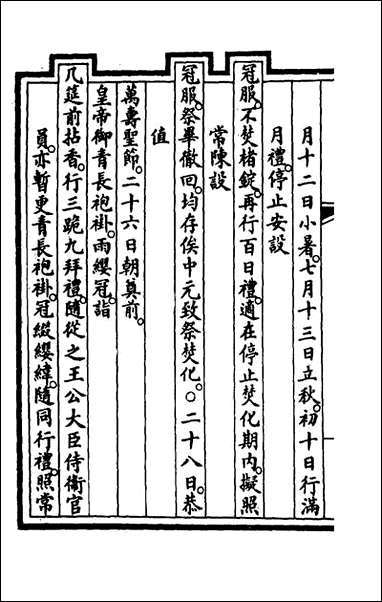 月十二日小暑。七月十三日立秋。初十日行滿
月禮。停止安設
冠服。不焚楮錠。再行百日禮。適在停止焚化期內。擬照
常陳設
冠服。祭畢徹回。均存俟中元致祭焚化。○二十八日。恭
值
萬壽聖節。二十六日朝奠前。
皇帝御青長袍褂。雨纓冠。詣
几筵前拈香。行三跪九拜禮。隨從之王公大臣侍衞官
員。亦暫更青長袍褂。冠綴纓緯。隨同行禮。照常